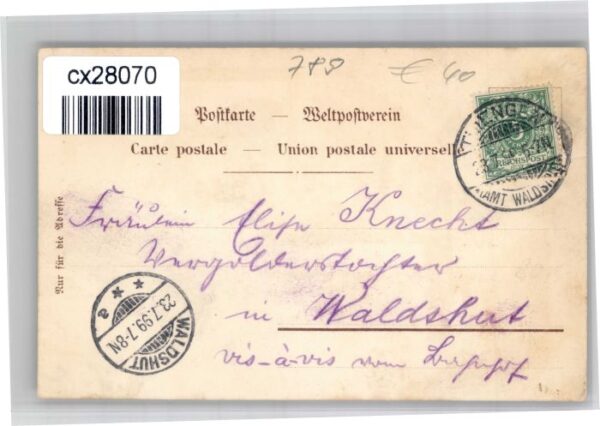 cx28070
789 € 40
Postkarte – Weltpostverein
Carte postale – Union postale universelle
THIENGEN
REICHSPOST
(AMT WALDSHUT)
Nur für die Adresse
Fräulein Elise Knecht
Vergolderstochter
in Waldshut
vis-à-vis vom Bahnhof
WALDSHUT
23.7.99.7-8N
* a *